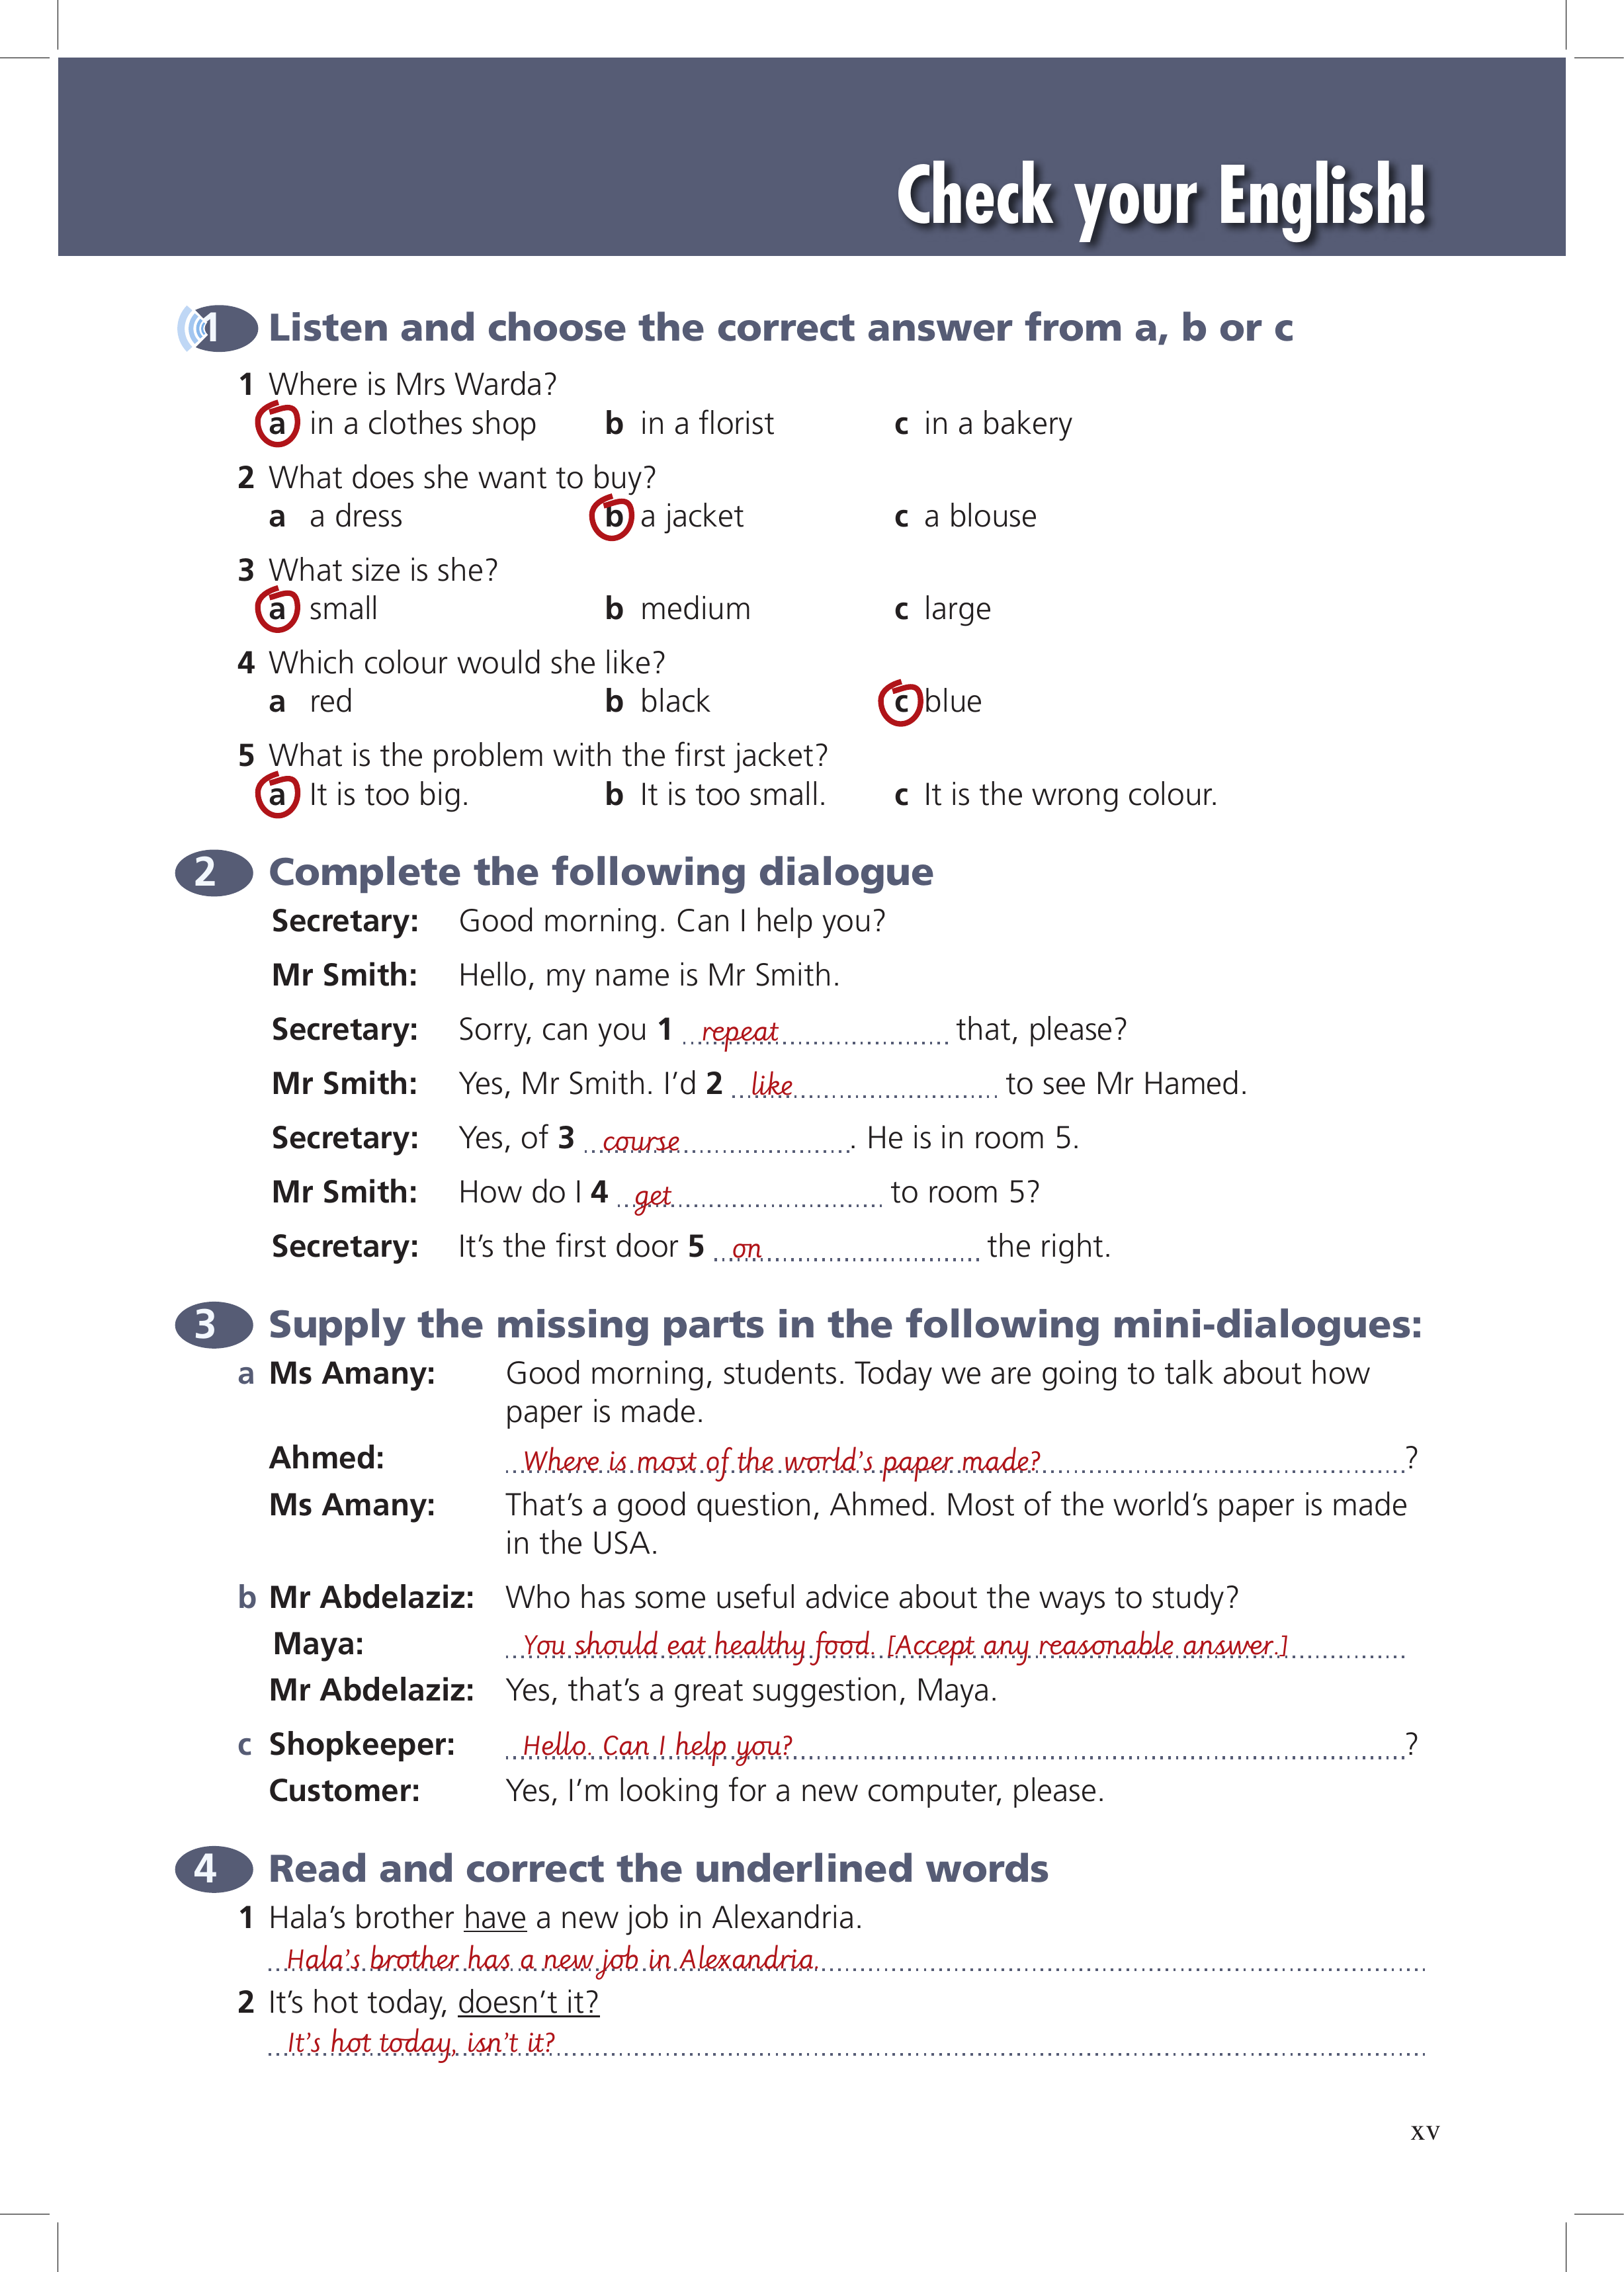 Check your English!
1 Listen and choose the correct answer from a, b or c
1 Where is Mrs Warda?
a in a clothes shop b in a florist c in a bakery
2 What does she want to buy?
a a dress b a jacket c a blouse
3 What size is she?
a small b medium c large
4 Which colour would she like?
a red b black c blue
5 What is the problem with the first jacket?
a It is too big. b It is too small. c It is the wrong colour.
2 Complete the following dialogue
Secretary: Good morning. Can I help you?
Mr Smith: Hello, my name is Mr Smith.
Secretary: Sorry, can you 1 repeat that, please?
Mr Smith: Yes, Mr Smith. I'd 2 like to see Mr Hamed.
Secretary: Yes, of 3 course. He is in room 5.
Mr Smith: How do I 4 get to room 5?
Secretary: It's the first door 5 on the right.
3 Supply the missing parts in the following mini-dialogues:
a Ms Amany: Good morning, students. Today we are going to talk about how
paper is made.
Ahmed: Where is most of the world's paper made? ?
Ms Amany: That's a good question, Ahmed. Most of the world's paper is made
in the USA.
b Mr Abdelaziz: Who has some useful advice about the ways to study?
Maya: You should eat healthy food. [Accept any reasonable answer.]
Mr Abdelaziz: Yes, that's a great suggestion, Maya.
c Shopkeeper: Hello. Can I help you? ?
Customer: Yes, I'm looking for a new computer, please.
4 Read and correct the underlined words
1 Hala's brother have a new job in Alexandria.
Hala's brother has a new job in Alexandria.
2 It's hot today, doesn't it?
It's hot today, isn't it?
xv